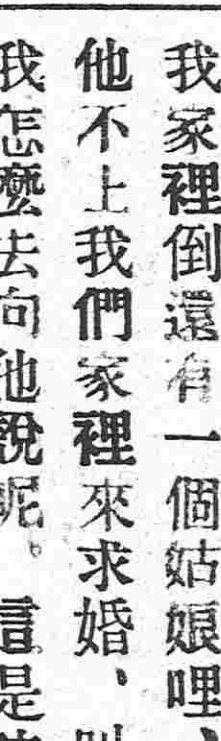 我家裡倒還有一個姑娘哩、
他不上我們家裡來求婚、
我怎麼去向他說呢。這是